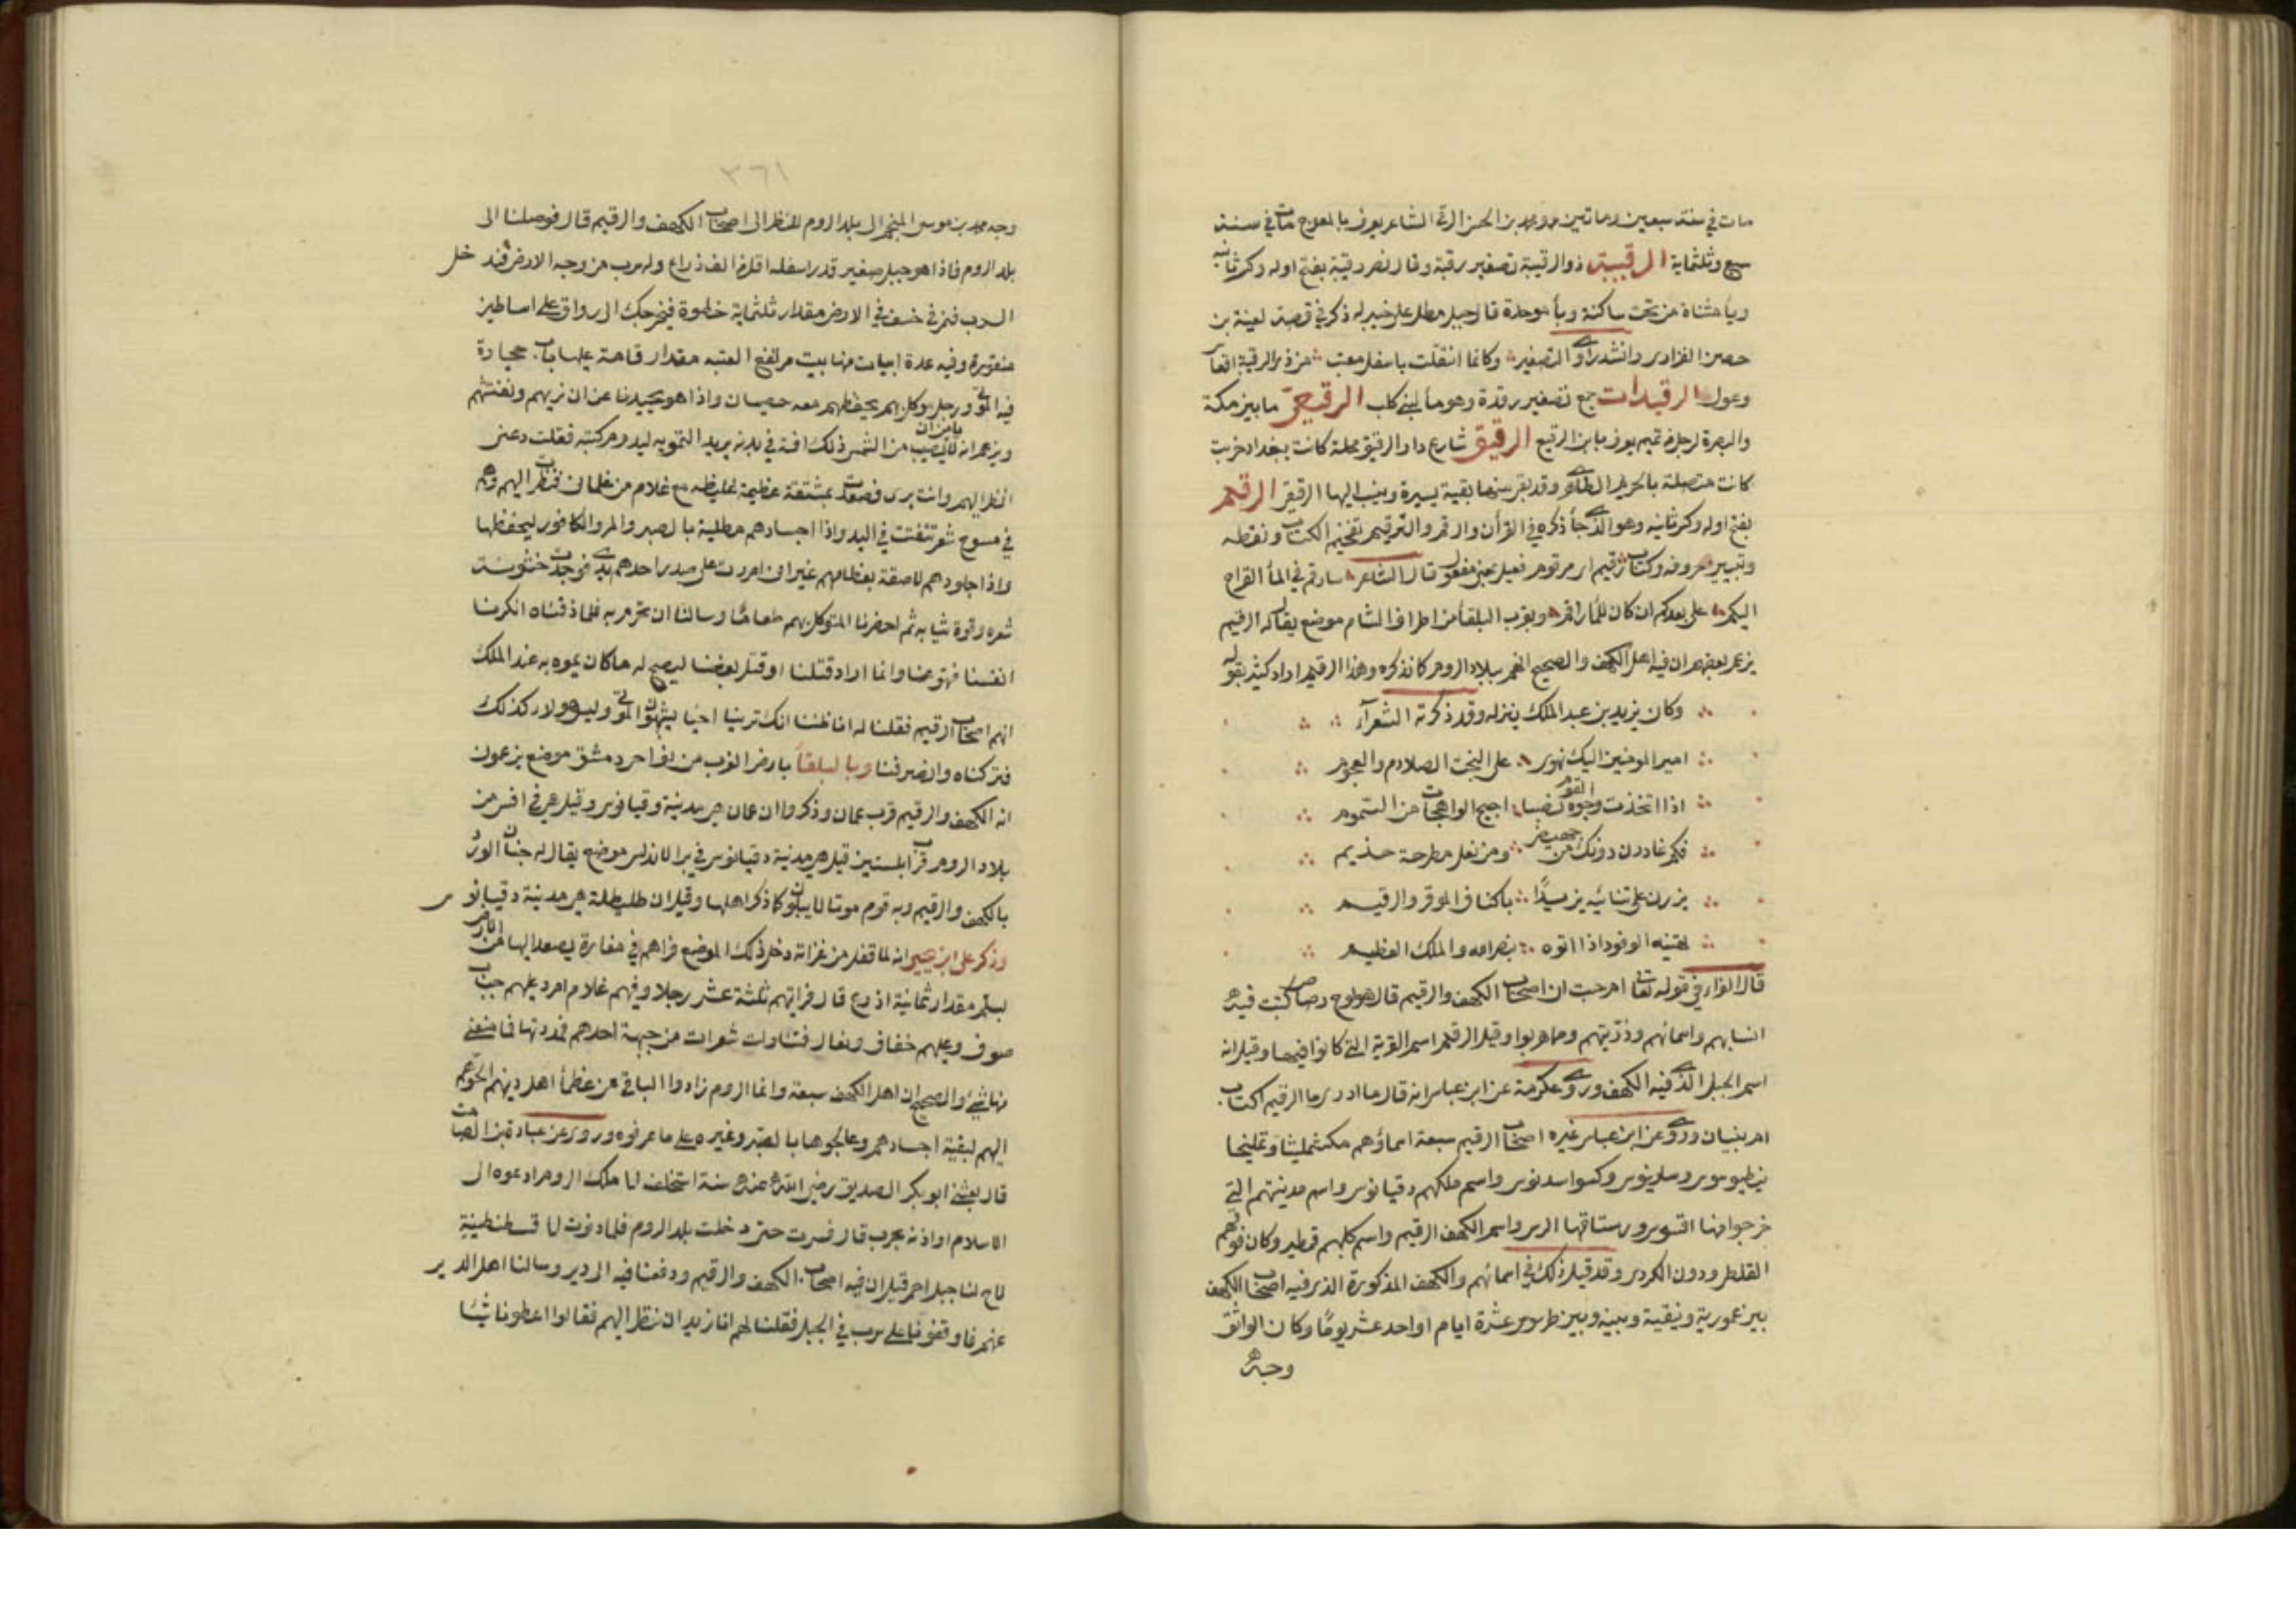 مات في سنة سبعين ومائتين ومحمد بن الحسن الرقي الشاعر يعرف بالمعوج مات في سنة
سبع وثلثماية الرقيبة ذو الرقيبة تصغير رقبة وقال نصر رقيبة بفتح اوله وكسر ثانيه
ويا مثناة من تحت ساكنة وبأ موحدة قال جبل مطل على خيبر له ذكر في قصة لعينة بن
حصن الفزاري وانشد راوي التصغير وكانما انتقلت باسفل معتب من ذي الرقيبة
وعول الرقيدات جمع تصغير رقدة وهو مأ لبني كلب الرقيعي ما بين مكة
والبصرة لرجل من تميم يعرف بابن الرقيع الرقيق شارع دار الرقيق محلة كانت ببغداد خربت
كانت متصلة بالحريم الطاهري وقد بقي منها بقية يسيرة وينسب اليها الرقيقي الرقيم
بفتح اوله وكسر ثانيه وهو الذي جأ ذكره في القرأن والرقم والترقيم تعجيم الكتاب ونقطه
وتبيين حروفه وكتاب رقيم اي مرقوم فعيل بمعنى مفعول قال الشاعر سارقم في المأ القراح
اليكم على بعدكم ان كان للمأ راقم وبقرب البلقأ من اطراف الشام موضع يقال له الرقيم
يزعم بعضهم ان فيه اهل الكهف والصحيح انهم ببلاد الروم كما نذكره وهذا الرقيم اراد كثير بقوله
وكان يزيد بن عبد الملك ينزله وقد ذكرته الشعرآ
امير المومنين اليك نهوي على البخت الصلادم والعجوم
اذا اتخذت وجوه القوم نصبا اجيج الواهجات من السموم
فكم غادرن دونك من جهيض ومن نعل مطرحة جذيم
يزرن على تنائيه يزيدًا باكناف الموقر والرقيم
تهنيه الوفود اذا اتوه بنصر الله والملك العظيم
قال الفرا في قوله تعالى ام حسبت ان اصحاب الكهف والرقيم قال هو لوح رصاص كتبت فيه
انسابهم واسمائهم ودينهم ومما هربوا وقيل الرقيم اسم القرية التي كانوا فيها وقيل انه
اسم الجبل الذي فيه الكهف وروى عكرمة عن ابن عباس انه قال ما ادري ما الرقيم اكتاب
ام بنيان وروى عن ابن عباس غيره اصحاب الرقيم سبعة اسماؤهم
واسم ملكهم دقيانوس واسم مدينتهم التي
خرجوا منها افسوس ورستاقها الرس واسم الكهف الرقيم واسم كلبهم قطمير وكان فوقهم
القلطي ودون الكردي وقد قيل ذلك في اسمائهم والكهف المذكورة الذي فيه اصحاب الكهف
بين عمورية ونيقية وبينه وبين طرسوس عشرة ايام او احد عشر يومًا وكان الواثق
وجه
٣٦١
وجه محمد بن موسى المنجم الى بلد الروم للنظر الى اصحاب الكهف والرقيم قال فوصلنا الى
بلد الروم فاذا هو جبل صغير قدر اسفله اقل من الف ذراع وله سرب من وجه الارض فتدخل
السرب فتمر في خسف في الارض مقدار ثلثماية خطوة فيخرجك الى رواق على اساطين
منقورة وفيه عدة ابيات منها بيت مرتفع العتبه مقدار قامة عليها باب حجارة
فيه الموتى ورجل موكل بهم يحفظهم معه خصيان واذا هو يحيدنا عن ان نريهم ونفتشهم
ويزعم انه لا يامن ان يصيب من التمس ذلك افة في بدنه يريد التمويه ليدوم كسبه فقلت دعني
انظر اليهم وانت بري فصعدت بمشقة عظيمة غليظه مع غلام من غلماني فنظرت اليهم وهم
في مسوح شعر تتفتت في اليد واذا اجسادهم مطلية بالصبر والمر والكافور ليحفظها
واذا جلودهم لاصقة بعظامهم غير اني امررت على صدر احدهم يدي فوجدت خشونة
شعره وقوة ثيابه ثم احضرنا المتوكل بهم طعامًا وسالنا ان نحرم به فلما ذقناه انكرنا
انفسنا فتهوعنا وانما اراد قتلنا او قتل بعضنا ليصح له ما كان يموه به عند الملك
انهم اصحاب الرقيم فقلنا له انا ظننا انك ترينا احيا يشبهون الموتى وليس هولا كذلك
فتركناه وانصرفنا وبالبلقأ بارض العرب من نواحي دمشق موضع يزعمون
انه الكهف والرقيم قرب عمان وذكروا ان عمان هي مدينة دقيانوس وقيل هي في افسس من
بلاد الروم قرب ابلستين قيل هي مدينة دقيانوس في بر الاندلس موضع يقال له جنان الورد
بالكهف والرقيم وبه قوم موتا لا يبلون كما ذكر اهلها وقيل ان طليطلة هي مدينة دقيانوس
وذكر علي ابن يحيى انه لما قفل من غزاته دخل ذلك الموضع فراهم في مغارة يصعد اليها من الارض
بسلم مقدار ثمانية اذرع قال فرايتهم ثلثة عشر رجلا وفيهم غلام امرد عليهم جباب
صوف وعليهم خفاف ونعال فتناولت شعرات من جبهة احدهم فمددتها فما منعني
منها شيء والصحيح ان اهل الكهف سبعة وانما الروم زادوا الباقي من عظمأ اهل دينهم
اليهم لبقية اجسادهم وعالجوها بالصبر وغيره على ما عرفوه وروى عن عبادة بن الصامت
قال بعثني ابو بكر الصديق رضي الله عنه سنة استخلف الى ملك الروم ادعوه الى
الاسلام او اذنه بحرب قال فسرت حتى دخلت بلد الروم فلما دنوت الى قسطنطينية
لاح لنا جبل احمر قيل ان فيه اصحاب الكهف والرقيم ودفعنا فيه الى دير وسالنا اهل الدير
عنهم فاوقفونا على سرب في الجبل فقلنا لهم انا نريد ان ننظر اليهم فقالوا اعطونا شيئا